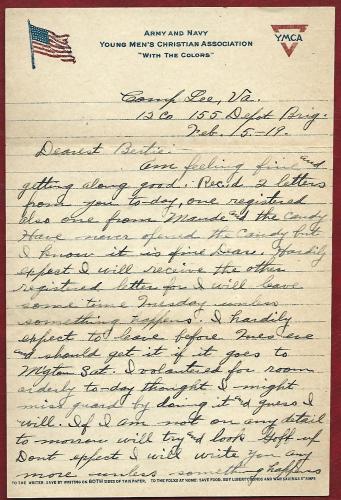 ARMY AND NAVY
YOUNG MEN'S CHRISTIAN ASSOCIATION
"WITH THE COLORS"
YMCA
Camp Lee, Va.
12 Co 155 Depot Brig.
Feb. 15-19.
Dearest Bertie:
am feeling fine and
getting along good. Rec'd 2 letters
from you to-day, one registered
also one from Maude & the candy
Have never opened the candy but
I know it is fine Dear. Hardily
expect I will receive the other
registered letter for I will leave
some time Tuesday unless
something happens. I hardily
expect to leave before Tues eve
& should get it if it goes to
Sat. I volunteered for room
orderly to-day thought I might
miss guard by doing it & guess I
will. If I am not on any detail
to-morrow will try & look Goff up
Dont expect I will write you any
more unless something happens
TO THE WRITER: SAVE BY WRITING ON BOTH SIDES OF THIS PAPER. TO THE FOLKS AT HOME: SAVE FOOD, BUY LIBERTY BONDS AND WAR SAVINGS STAMPS